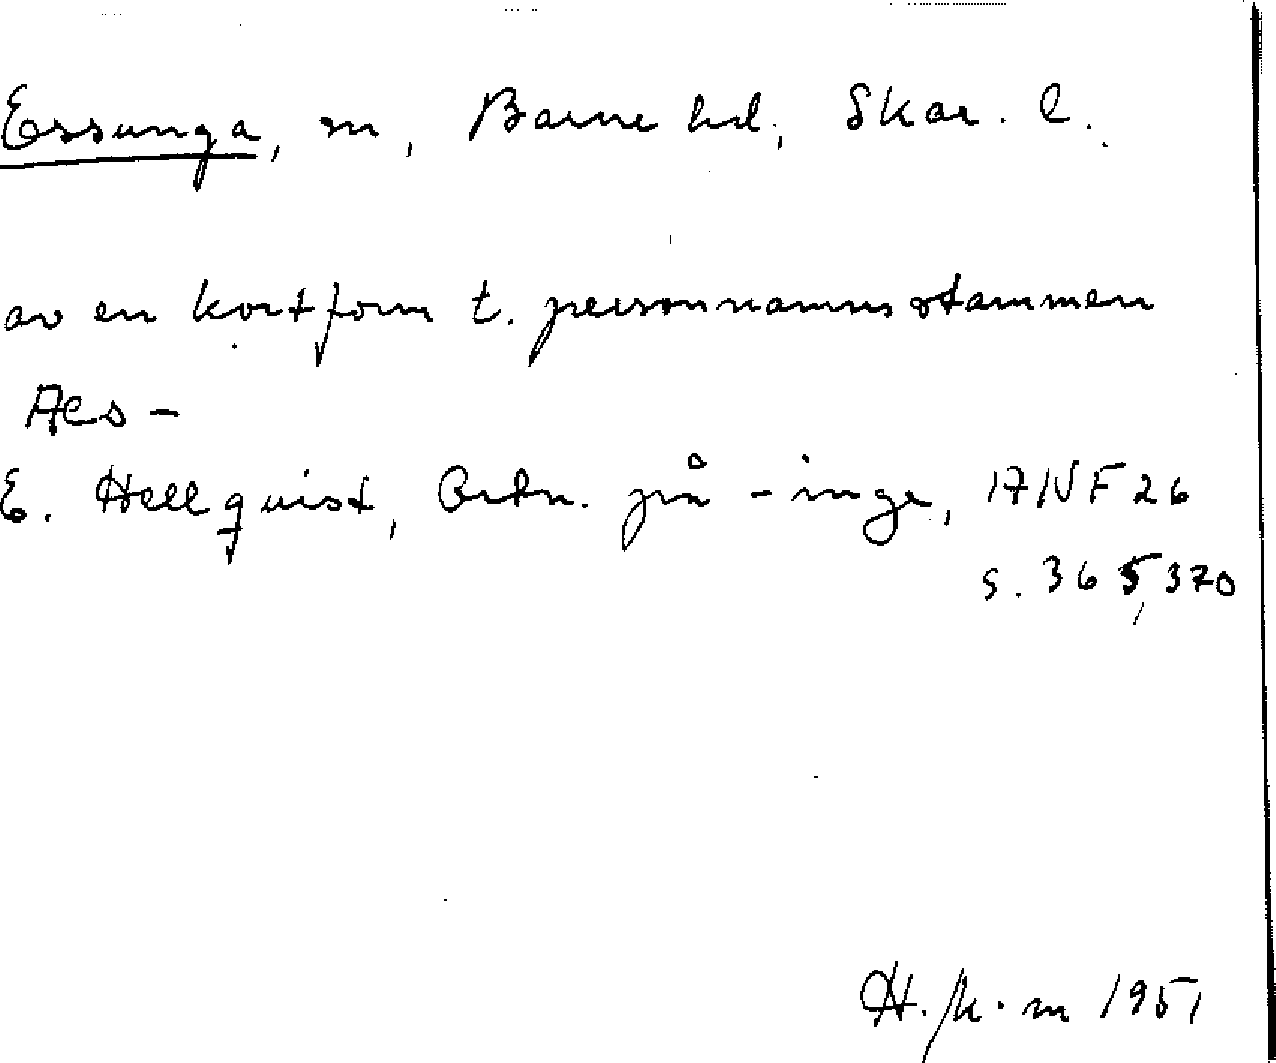 Essunga, sn, Barne hd, Skar. l.
av en kortform t. personnamnsstammen
Aes-
E. Hellquist, Ortn. på -inge, 17 NF 26
s. 365, 370
1951